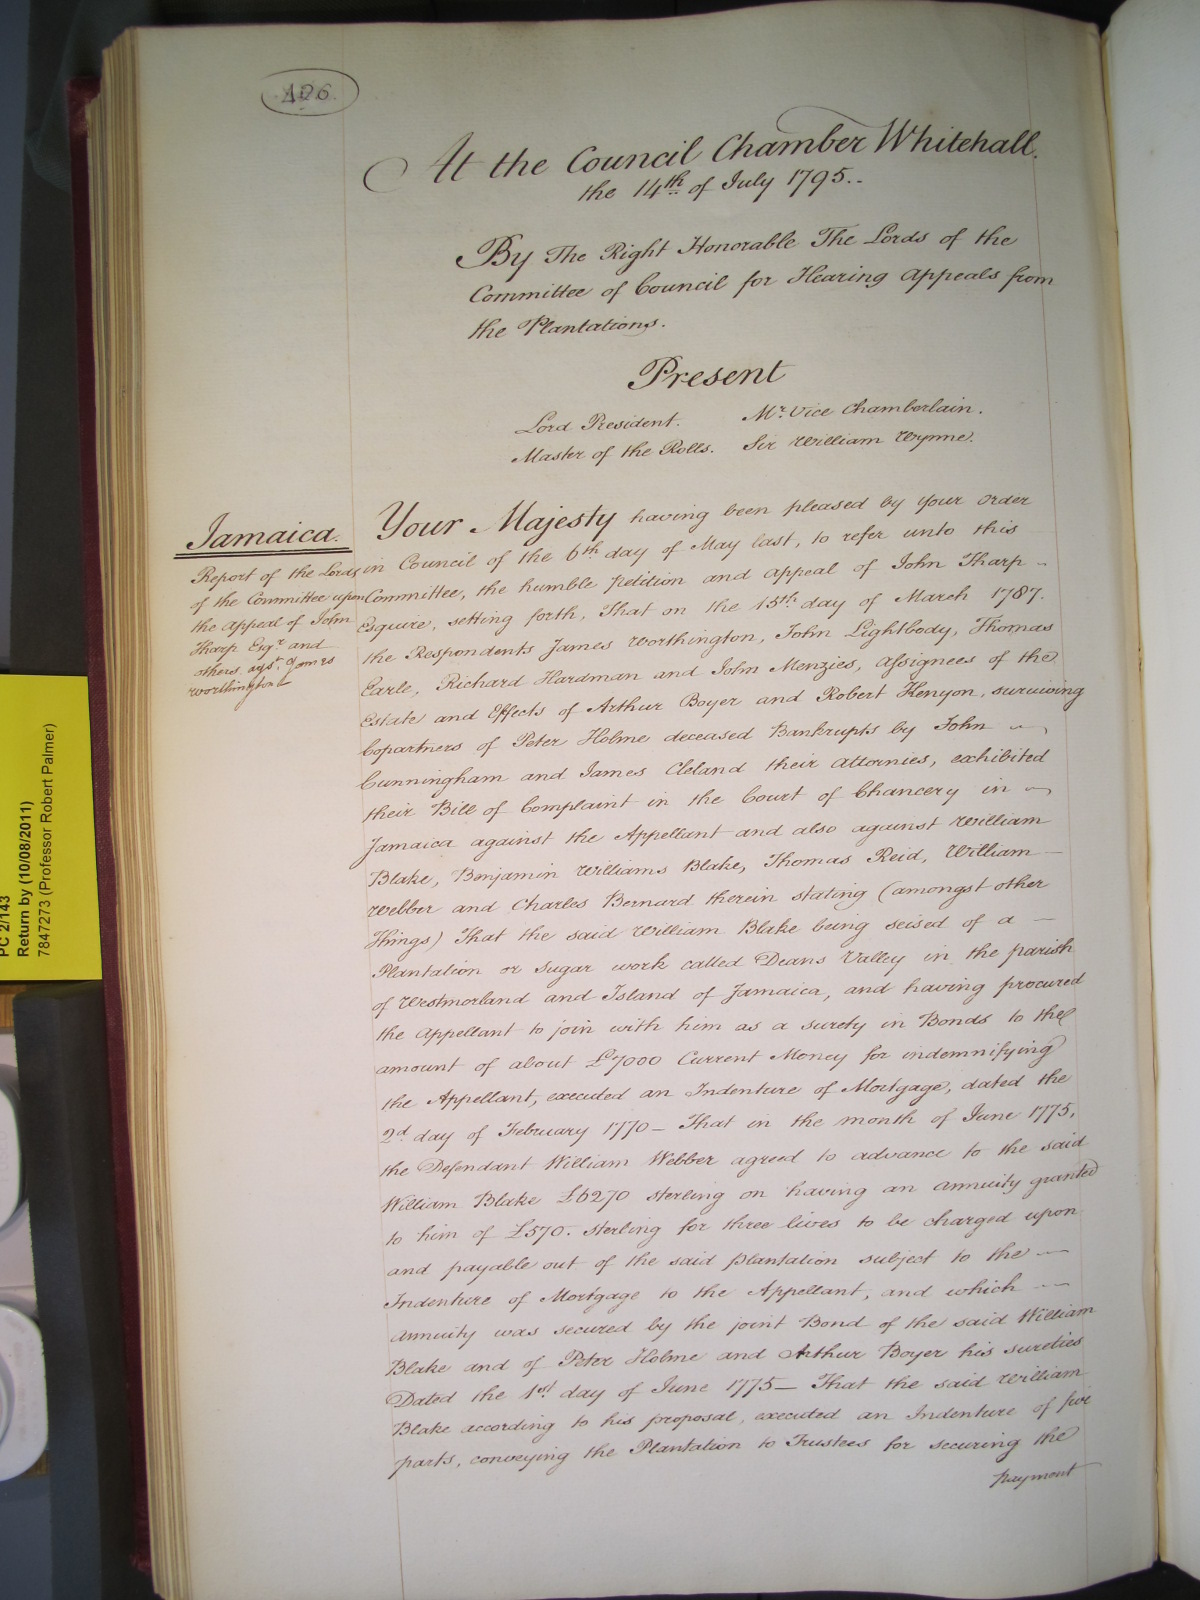 426
At the Council Chamber Whitehall.
the 14th of July 1795..
By The Right Honorable The Lords of the
Committee of Council for Hearing Appeals from
the Plantations.
Present
Lord President. Mr. Vice Chamberlain.
Master of the Rolls. Sir William Wynne.
Jamaica.
Report of the Lords
of the Committee upon
the appeal of John
Tharp Esqr. and
others agst. James
Worthington &
Your Majesty having been pleased by your Order
in Council of the 6th day of May last, to refer unto this
Committee, the humble petition and appeal of John Tharp
Esquire, setting forth, That on the 15th day of March 1787.
the Respondents James Worthington, John Lightbody, Thomas
Earle, Richard Hardman and John Menzies, assignees of the
Estate and Effects of Arthur Boyer and Robert Kenyon, surviving
Copartners of Peter Holme deceased Bankrupts by John
Cunningham and James Cleland their attornies, exhibited
their Bill of Complaint in the Court of Chancery in
Jamaica against the Appellant and also against William
Blake, Benjamin Williams Blake, Thomas Reid, William
Webber and Charles Bernard therein stating (amongst other
things) That the said William Blake being seised of a
Plantation or Sugar work called Deans Valley in the parish
of Westmorland and Island of Jamaica, and having procured
the appellant to join with him as a surety in Bonds to the
amount of about £7000 Current Money for indemnifying
the Appellant, executed an Indenture of Mortgage, dated the
2d. day of February 1770 — That in the month of June 1775,
the Defendant William Webber agreed to advance to the said
William Blake £6270 sterling on having an annuity granted
to him of £570. sterling for three lives to be charged upon
and payable out of the said plantation subject to the
Indenture of Mortgage to the Appellant, and which
annuity was secured by the joint Bond of the said William
Blake and of Peter Holme and Arthur Boyer his sureties
Dated the 1st day of June 1775 — That the said William
Blake according to his proposal, executed an Indenture of five
parts, conveying the Plantation to Trustees for securing the
payment
PC 2/143
Return by (10/08/2011)
7847273 (Professor Robert Palmer)